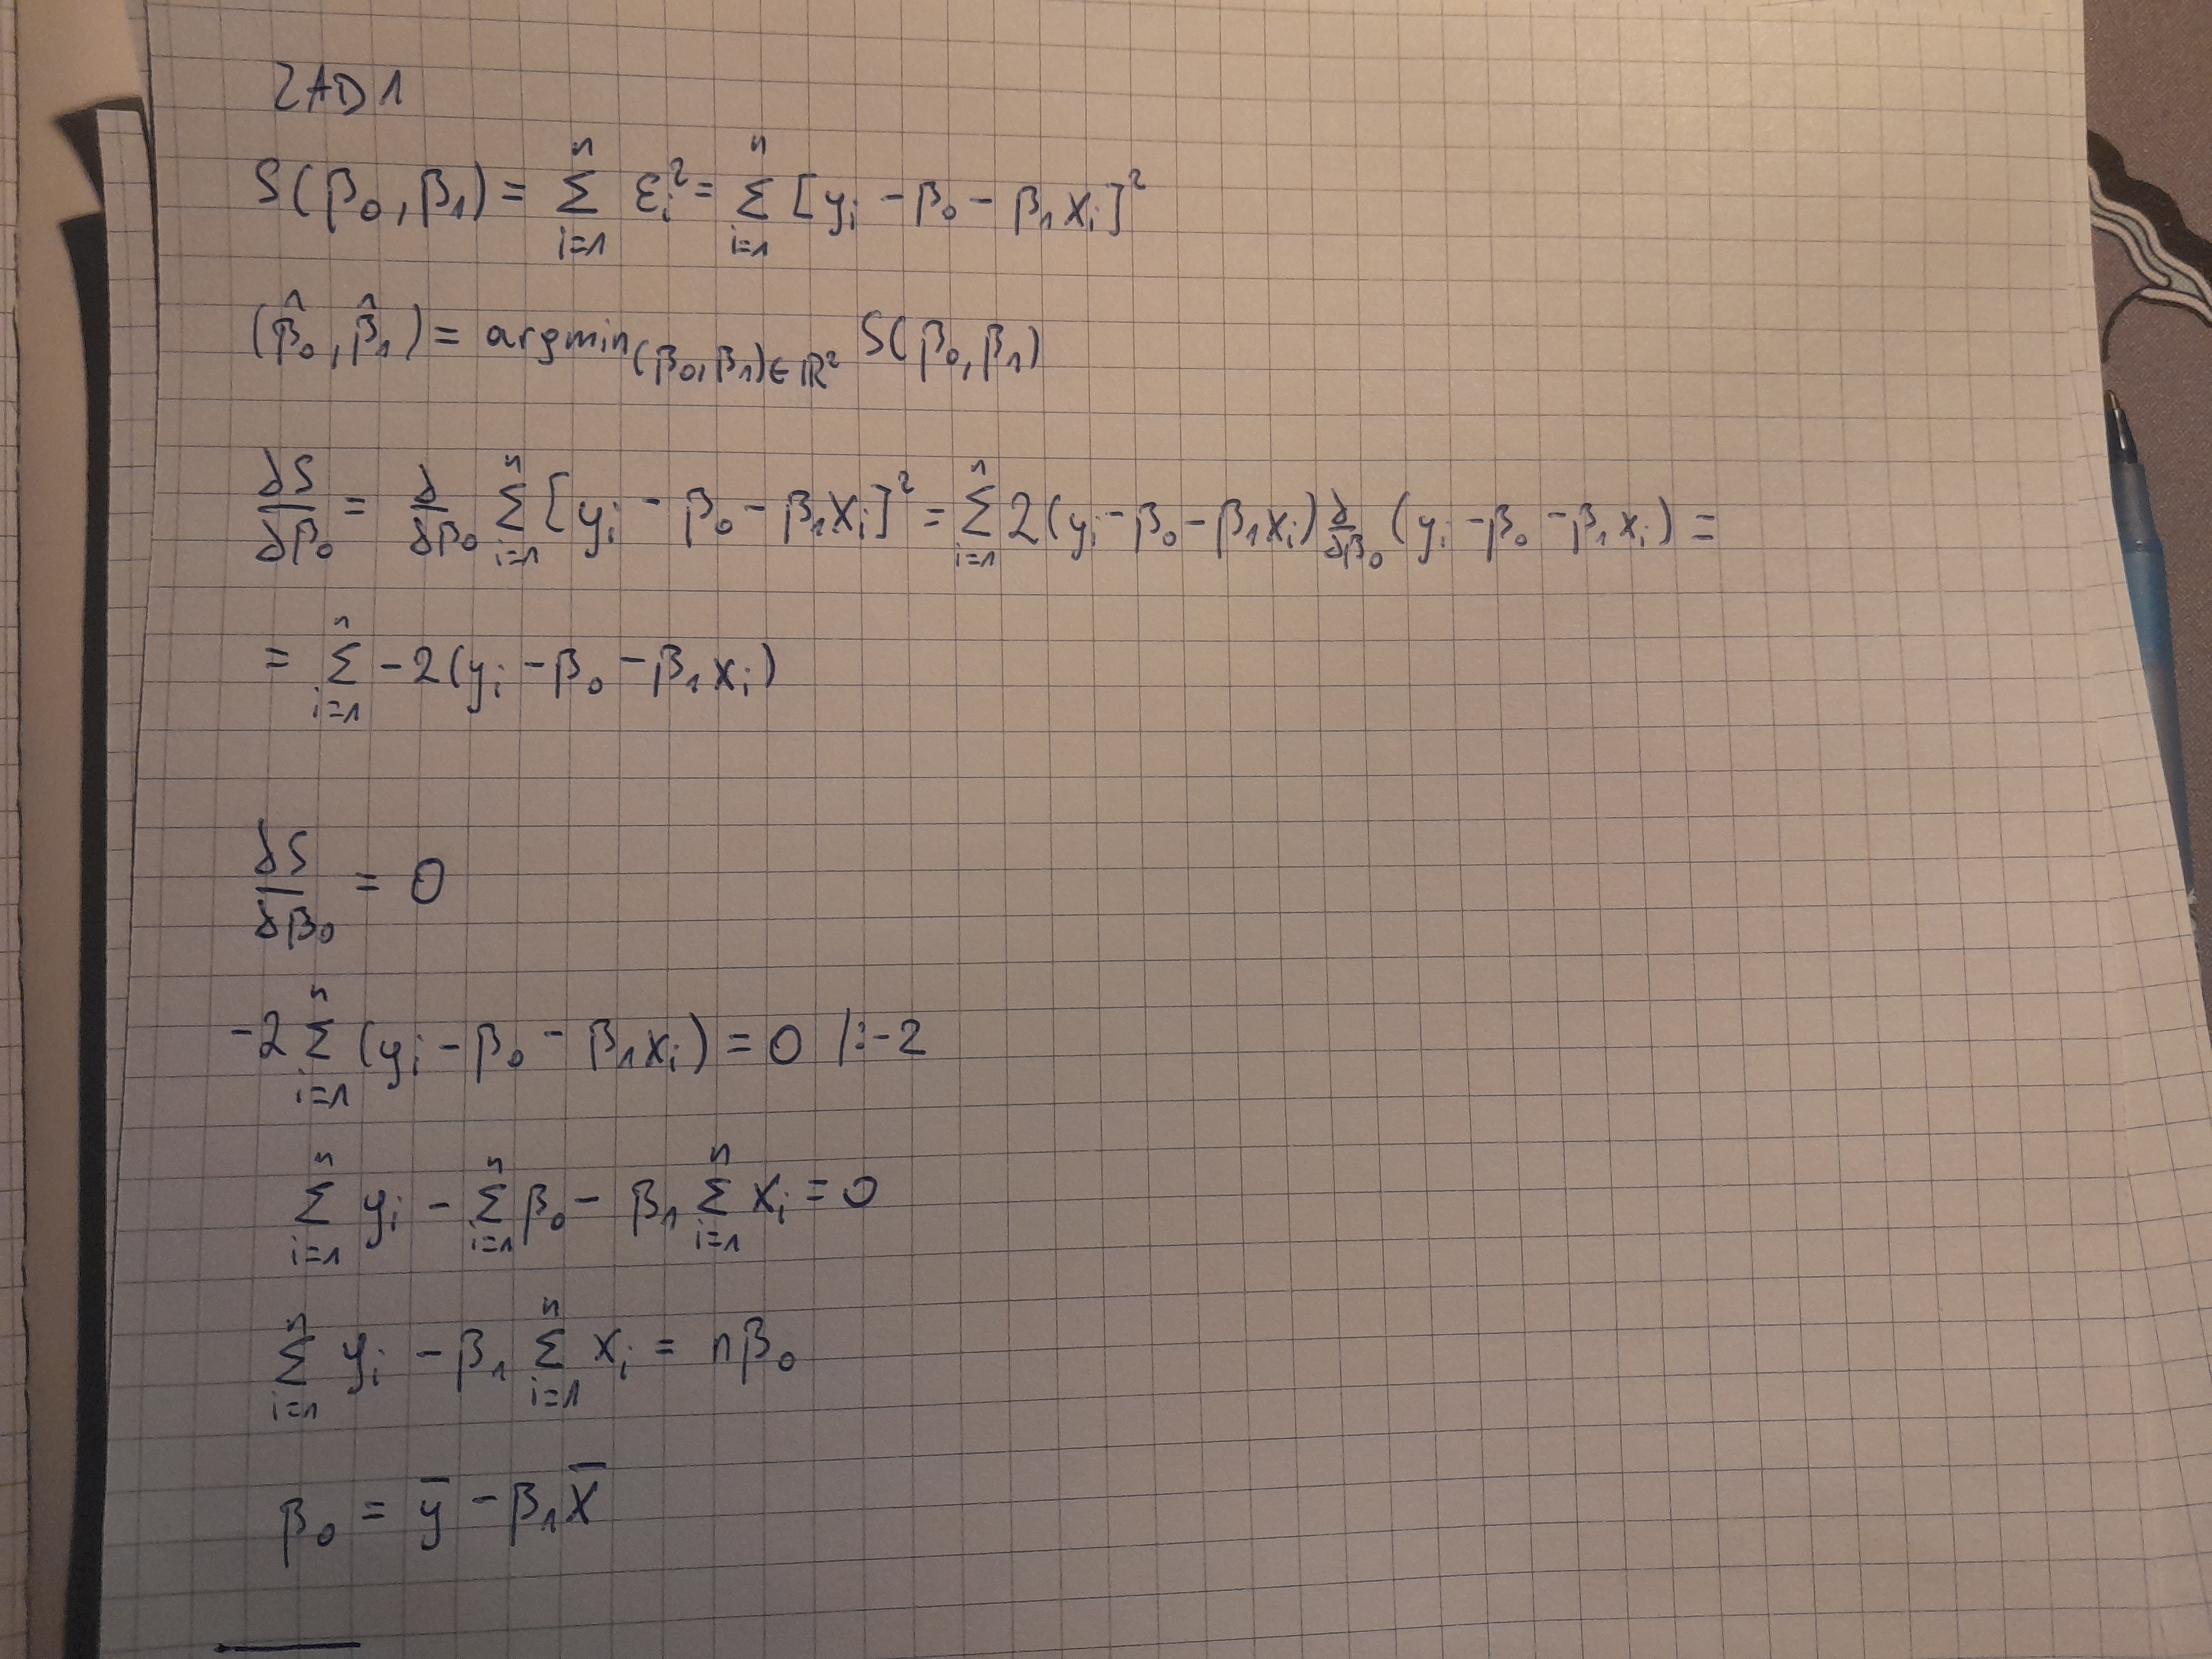 ZAD 1
S(β₀, β₁) = ∑ᵢ₌₁ⁿ εᵢ² = ∑ᵢ₌₁ⁿ [yᵢ - β₀ - β₁xᵢ]²
(β̂₀, β̂₁) = argmin₍β₀, β₁₎∈ℝ² S(β₀, β₁)
∂S/∂β₀ = ∂/∂β₀ ∑ᵢ₌₁ⁿ [yᵢ - β₀ - β₁xᵢ]² = ∑ᵢ₌₁ⁿ 2(yᵢ - β₀ - β₁xᵢ) ∂/∂β₀ (yᵢ - β₀ - β₁xᵢ) =
= ∑ᵢ₌₁ⁿ -2(yᵢ - β₀ - β₁xᵢ)
∂S/∂β₀ = 0
-2 ∑ᵢ₌₁ⁿ (yᵢ - β₀ - β₁xᵢ) = 0 /:-2
∑ᵢ₌₁ⁿ yᵢ - ∑ᵢ₌₁ⁿ β₀ - β₁ ∑ᵢ₌₁ⁿ xᵢ = 0
∑ᵢ₌₁ⁿ yᵢ - β₁ ∑ᵢ₌₁ⁿ xᵢ = nβ₀
β₀ = ȳ - β₁x̄